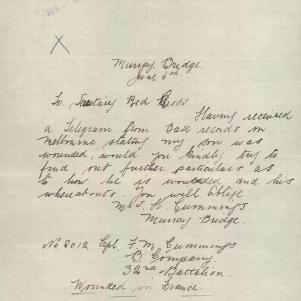 Murray Bridge.
June 6th
To, Secretary Red Cross.
Having received
a Telegram from Base records in
Melbourne stating my son was
wounded, would you kindly try to
find out further particulars as
to how he is wounded and his
whereabouts you will oblige
Mrs H. Cummings
Murray Bridge.
No 2012 Cpl. F. M. Cummings
B Company
32nd Battalion.
Wounded in France.